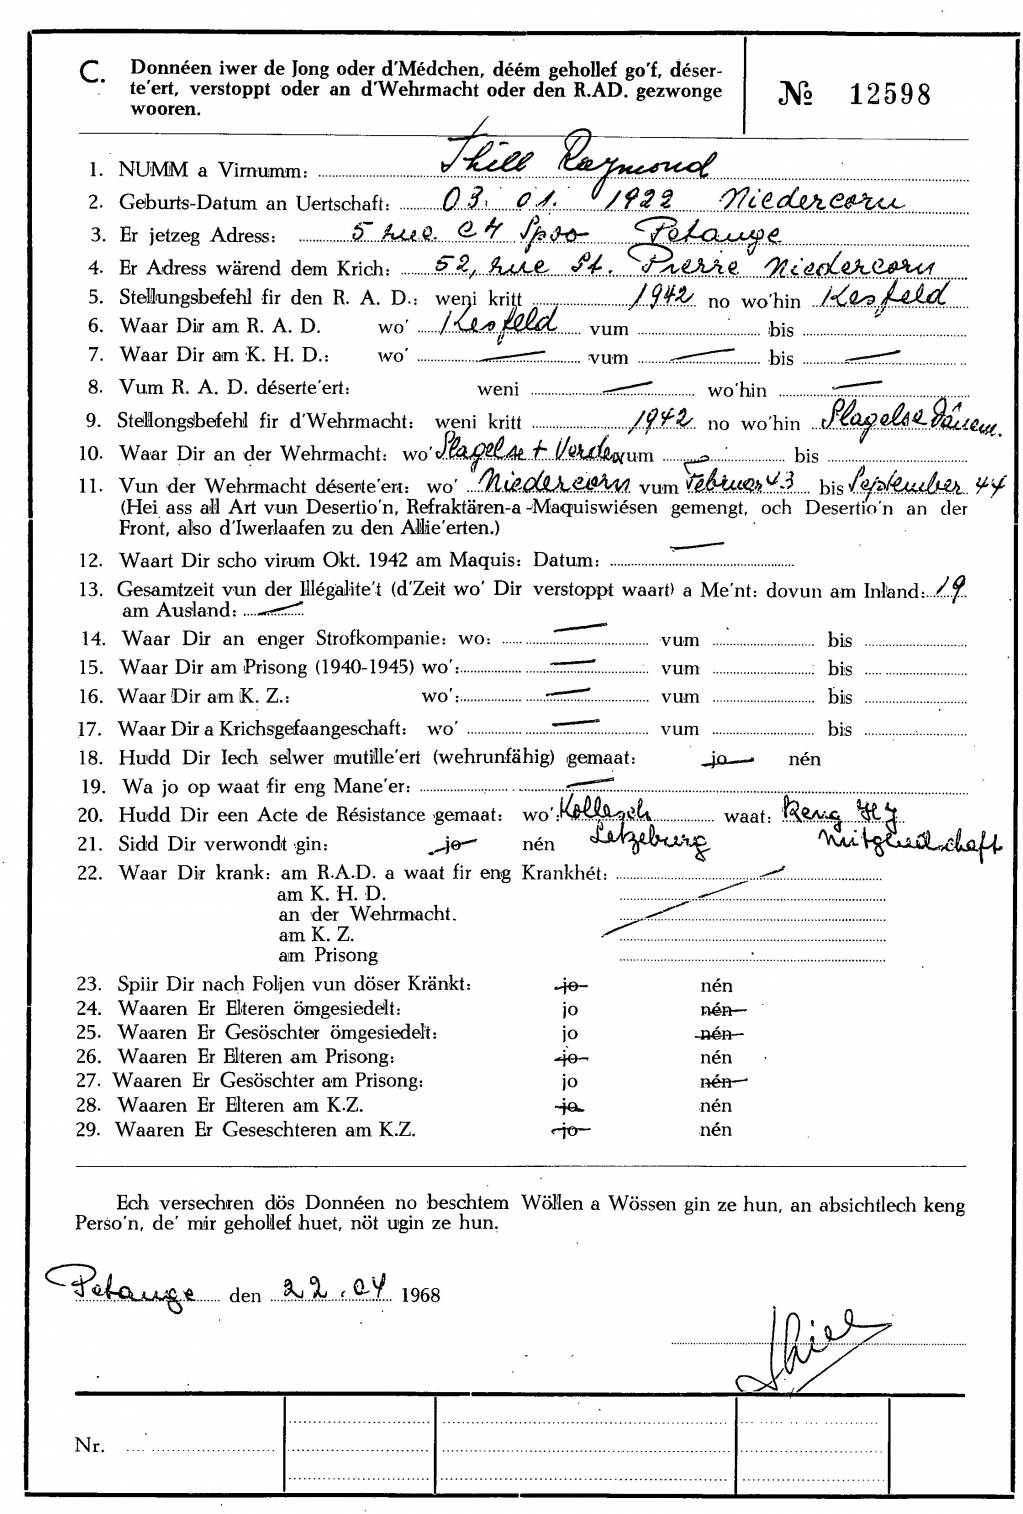 C. Donnéen iwer de Jong oder d'Médchen, déém gehollef go'f, déser-
te'ert, verstoppt oder an d'Wehrmacht oder den R.AD. gezwonge
wooren.
№ 12598
1. NUMM a Virnumm: Thill Raymond
2. Geburts-Datum an Uertschaft: 03. 01. 1922 Niedercorn
3. Er jetzeg Adress: 5 rue C M Spoo Petange
4. Er Adress wärend dem Krich: 52, rue St. Pierre Niedercorn
5. Stellungsbefehl fir den R. A. D.: weni kritt 1942 no wo'hin Kesfeld
6. Waar Dir am R. A. D. wo' Kesfeld vum bis
7. Waar Dir am K. H. D.: wo' — vum — bis —
8. Vum R. A. D. déserte'ert: weni — wo'hin —
9. Stellongsbefehl fir d'Wehrmacht: weni kritt 1942 no wo'hin Slagelse Dänem.
10. Waar Dir an der Wehrmacht: wo' Slagelse + vum bis
11. Vun der Wehrmacht déserte'ert: wo' Niedercorn vum Februar 43 bis September 44
(Hei ass all Art vun Desertio'n, Refraktären-a-Maquiswiésen gemengt, och Desertio'n an der
Front, also d'Iwerlaafen zu den Allie'erten.)
12. Waart Dir scho virum Okt. 1942 am Maquis: Datum: —
13. Gesamtzeit vun der Illégalite't (d'Zeit wo' Dir verstoppt waart) a Me'nt: dovun am Inland: 19
am Ausland: —
14. Waar Dir an enger Strofkompanie: wo: — vum bis
15. Waar Dir am Prisong (1940-1945) wo': — vum bis
16. Waar Dir am K. Z.: wo': — vum bis
17. Waar Dir a Krichsgefaangeschaft: wo' — vum bis
18. Hudd Dir Iech selwer mutille'ert (wehrunfähig) gemaat: jo nén
19. Wa jo op waat fir eng Mane'er: —
20. Hudd Dir een Acte de Résistance gemaat: wo': Kollesch waat: Keng HJ
21. Sidd Dir verwondt gin: jo nén Letzeburg Mitgliedschaft
22. Waar Dir krank: am R.A.D. a waat fir eng Krankhét:
am K. H. D.
an der Wehrmacht.
am K. Z.
am Prisong
23. Spiir Dir nach Foljen vun döser Kränkt: jo nén
24. Waaren Er Elteren ömgesiedelt: jo nén
25. Waaren Er Gesöschter ömgesiedelt: jo nén
26. Waaren Er Elteren am Prisong: jo nén
27. Waaren Er Gesöschter am Prisong: jo nén
28. Waaren Er Elteren am K.Z. jo nén
29. Waaren Er Geseschteren am K.Z. jo nén
Ech versechren dös Donnéen no beschtem Wöllen a Wössen gin ze hun, an absichtlech keng
Perso'n, de' mir gehollef huet, nöt ugin ze hun.
Petange den 22.04 1968
Thill
Nr.